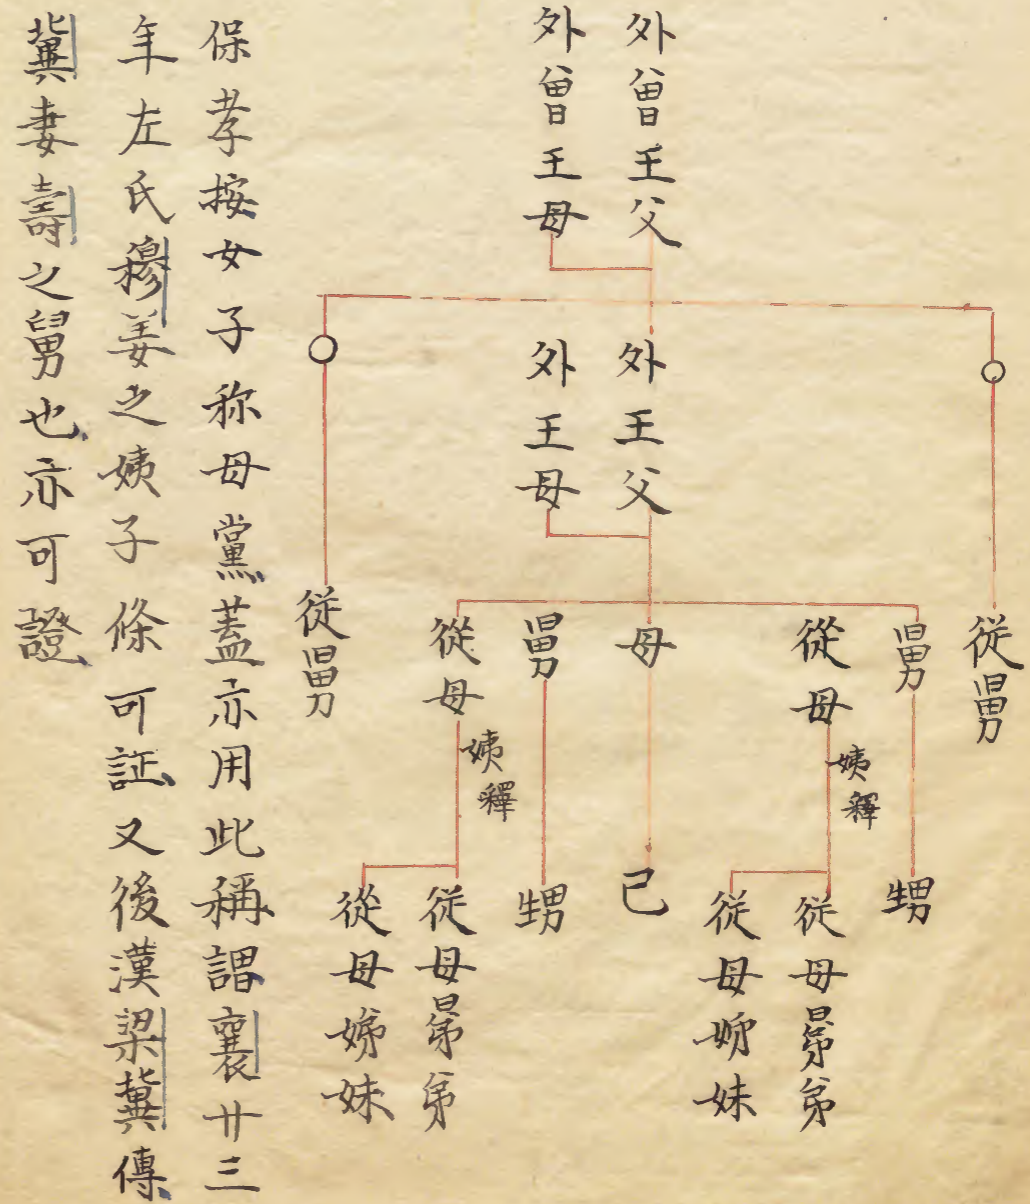 外曾王父
外曾王母
外王父
外王母
從舅
舅
從母
姨釋
母
舅
從母
姨釋
從舅
甥
從母晜弟
從母姊妹
己
甥
從母晜弟
從母娣妹
保孝按女子称母黨蓋亦用此稱謂襄廿三
年左氏穆姜之姨子條可証又後漢梁冀傳
冀妻壽之舅也亦可證